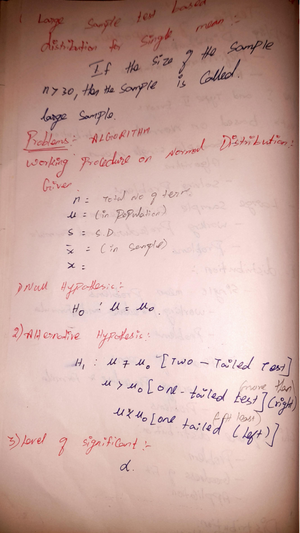 Large Sample test based
distribution for Single mean :-
If the Size of the Sample
n > 30, then the Sample is Called
large Sample.
Problems:- ALGORITHM
Working Procedure on Normal Distribution:
Given
n = Total no of items
μ = (in population)
s = S.D
x̄ = (in sample)
x =
1) Null Hypothesis:-
H₀ : μ = μ₀
2) Alternative Hypothesis:
H₁ : μ ≠ μ₀ [Two - Tailed Test]
(more than)
μ > μ₀ [one - tailed test] (right)
(left less)
μ < μ₀ [one tailed (left)]
3) level of significant :-
α.